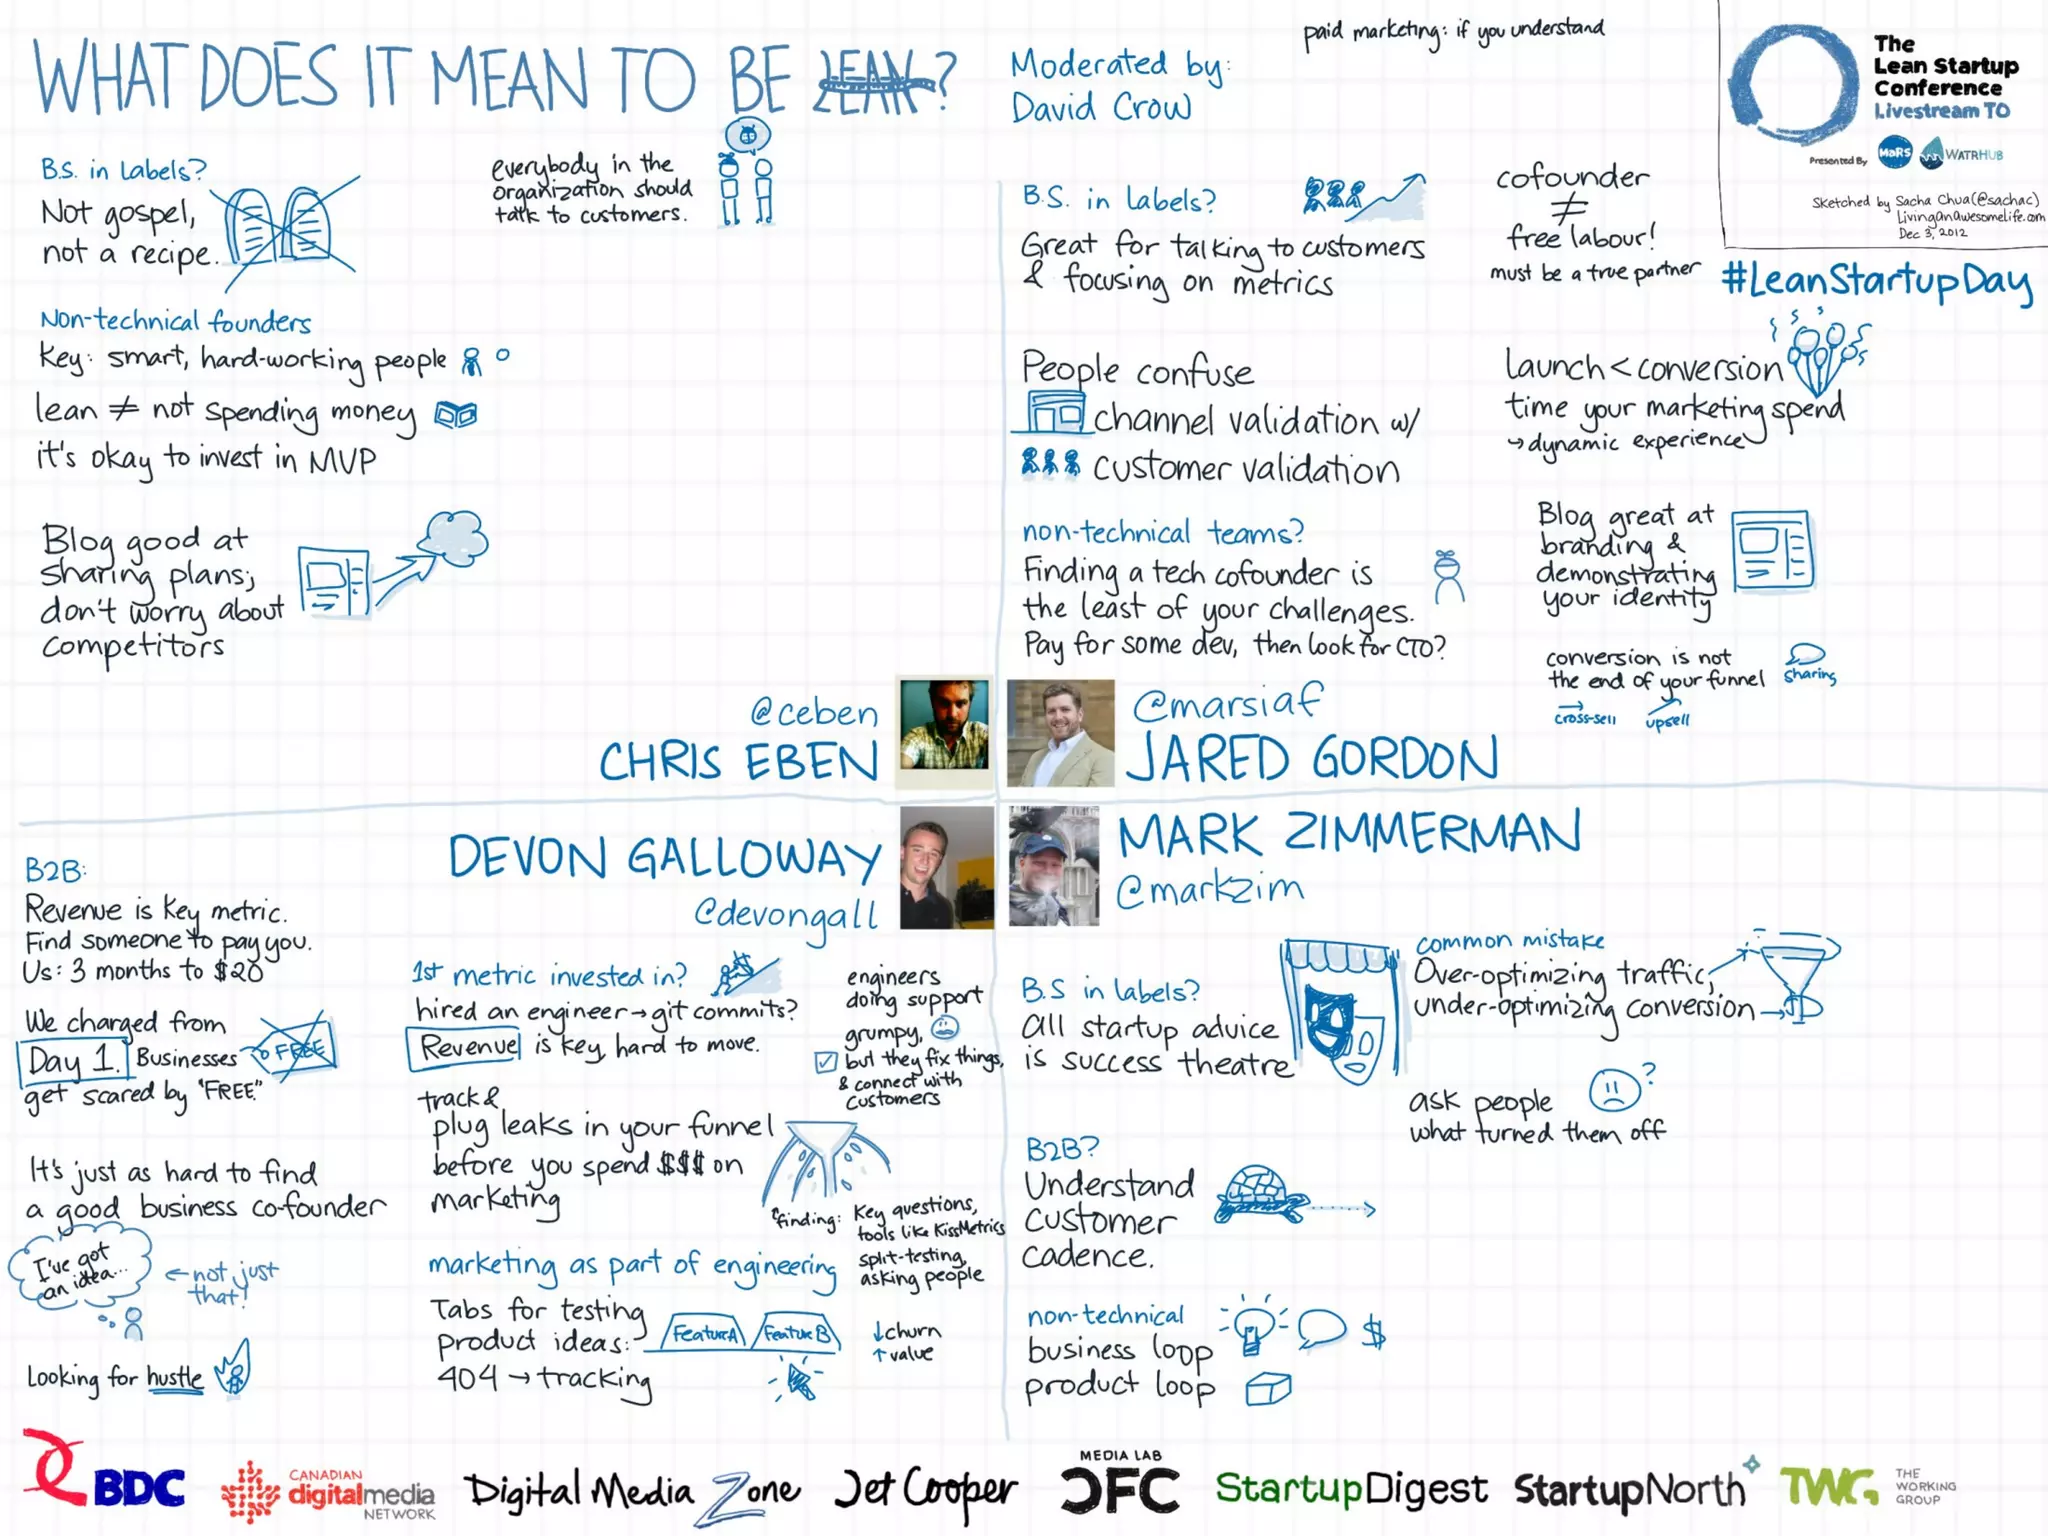 WHAT DOES IT MEAN TO BE LEAN?
Moderated by:
David Crow
paid marketing: if you understand
The
Lean Startup
Conference
Livestream TO
Presented By MaRS WATRHUB
Sketched by Sacha Chua (@sachac)
LivingAnAwesomeLife.com
Dec 3, 2012
#LeanStartupDay
B.S. in labels?
Not gospel,
not a recipe.
everybody in the
organization should
talk to customers.
Non-technical founders
Key: smart, hard-working people
lean ≠ not spending money
it's okay to invest in MVP
Blog good at
sharing plans;
don't worry about
competitors
@ceben
CHRIS EBEN
B.S. in labels?
Great for talking to customers
& focusing on metrics
People confuse
channel validation w/
customer validation
non-technical teams?
Finding a tech cofounder is
the least of your challenges.
Pay for some dev, then look for CTO?
cofounder
≠
free labour!
must be a true partner
launch < conversion
time your marketing spend
↳ dynamic experience
Blog great at
branding &
demonstrating
your identity
conversion is not
the end of your funnel
sharing
cross-sell
upsell
@marsiaf
JARED GORDON
DEVON GALLOWAY
@devongall
B2B:
Revenue is key metric.
Find someone to pay you.
Us: 3 months to $20
We charged from
Day 1. Businesses
get scared by "FREE."
FREE
It's just as hard to find
a good business co-founder
I've got
an idea...
← not just
that!
Looking for hustle
1st metric invested in?
hired an engineer → git commits?
Revenue is key, hard to move.
track &
plug leaks in your funnel
before you spend $$$ on
marketing
engineers
doing support
grumpy,
but they fix things,
& connect with
customers
finding: Key questions,
tools like KissMetrics
split-testing,
asking people
marketing as part of engineering
Tabs for testing
product ideas:
404 → tracking
Feature A
Feature B
↓ churn
↑ value
MARK ZIMMERMAN
@markzim
B.S in labels?
all startup advice
is success theatre
common mistake
Over-optimizing traffic,
under-optimizing conversion
ask people
what turned them off
?
B2B?
Understand
customer
cadence.
non-technical
business loop
product loop
$
BDC
CANADIAN
digitalmedia
NETWORK
Digital Media Zone
Jet Cooper
MEDIA LAB
CFC
StartupDigest
StartupNorth
TWG
THE
WORKING
GROUP